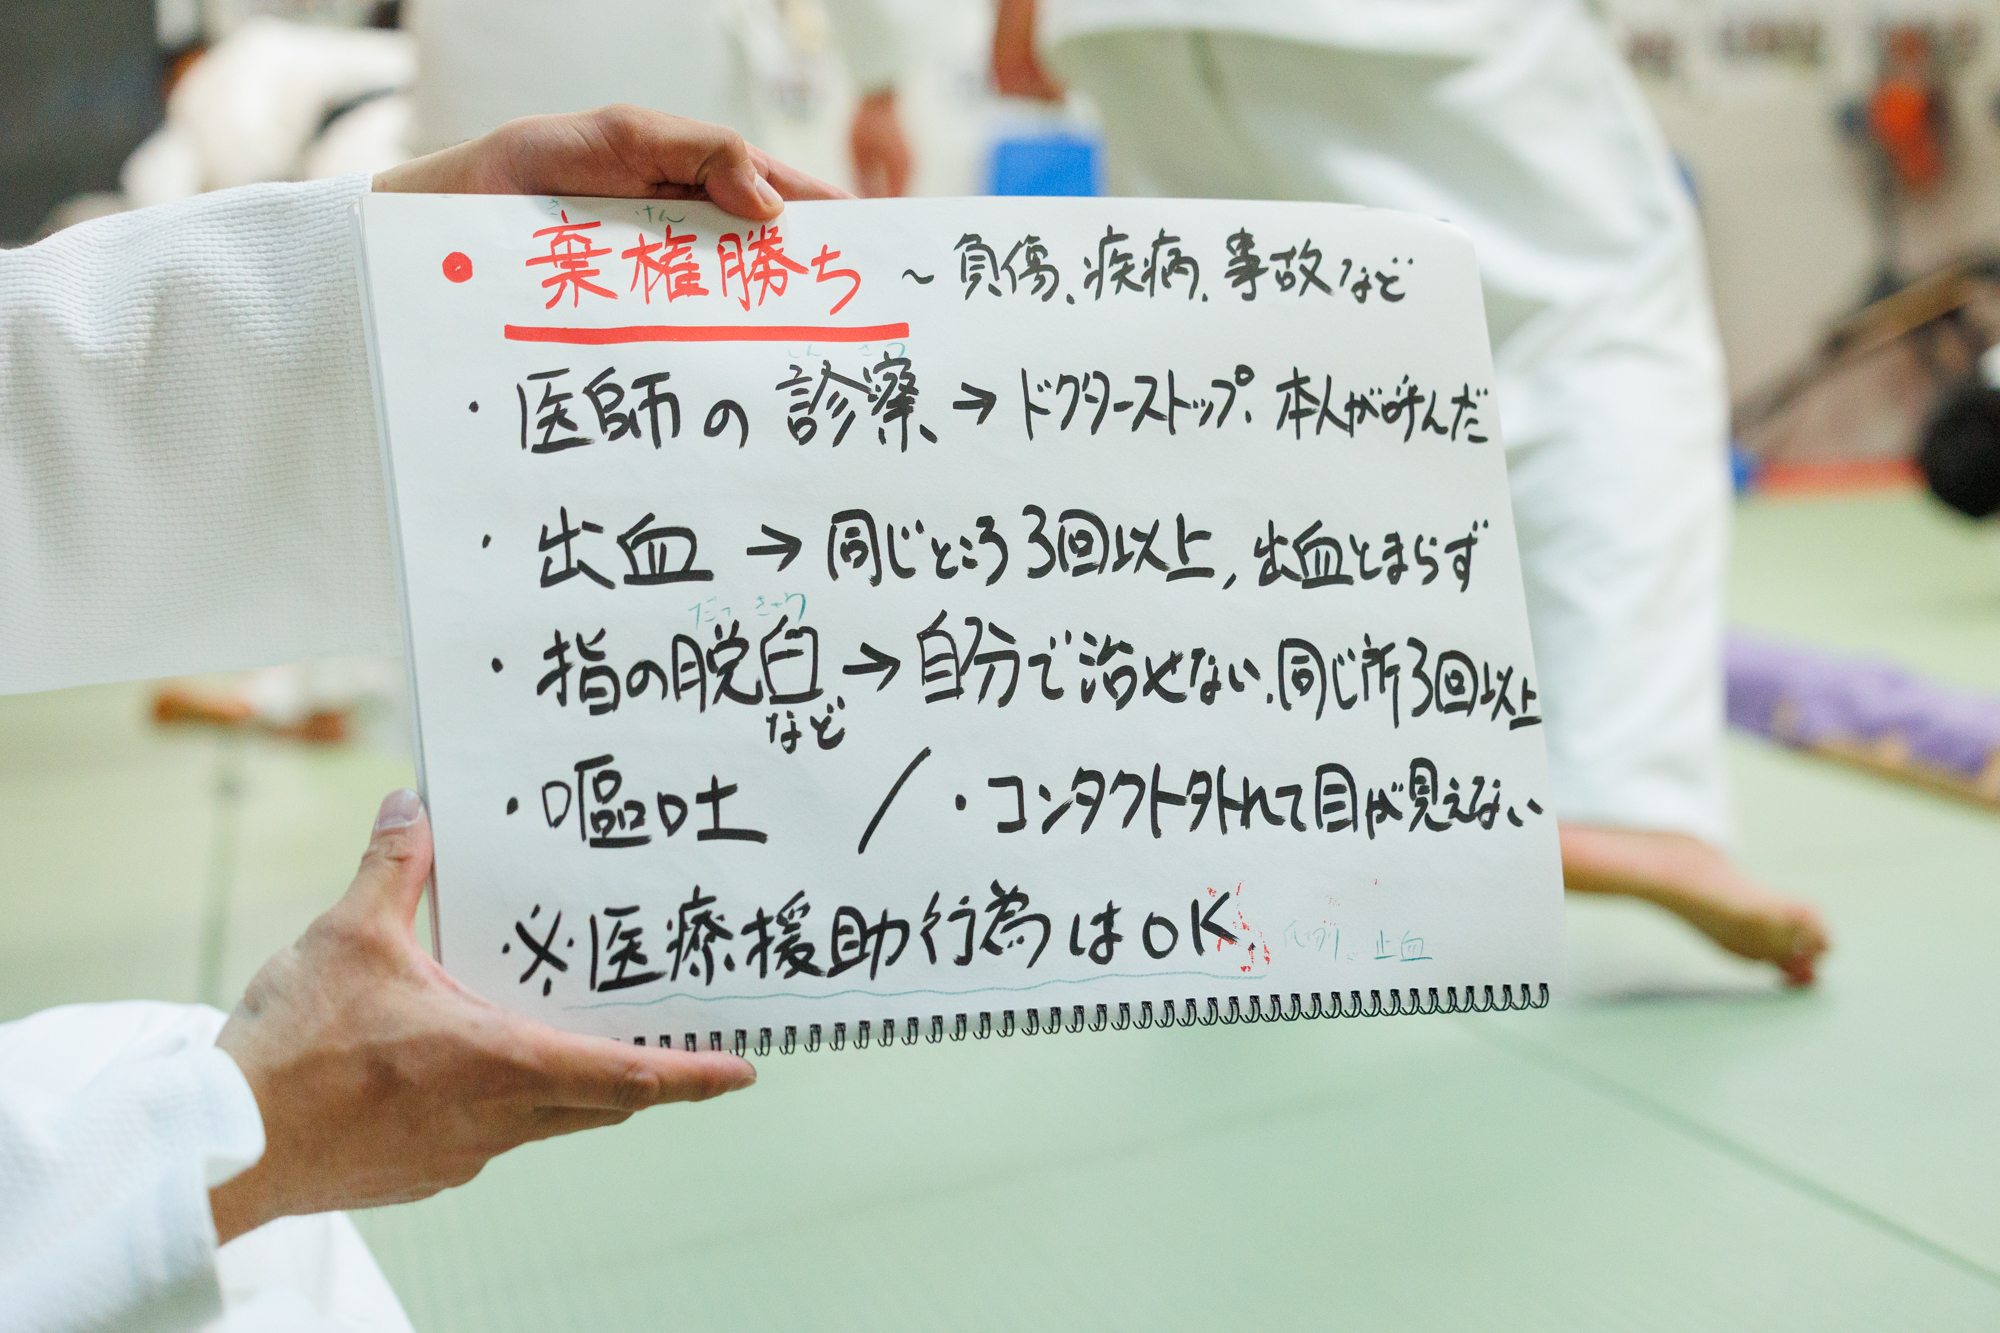 き けん
● 棄権勝ち ～負傷、疾病、事故など
しん さつ
・医師の診察 → ドクターストップ、本人が呼んだ
・出血 → 同じところ3回以上, 出血とまらず
だっ きゅう
・指の脱臼など → 自分で治せない、同じ所3回以上
・嘔吐 / ・コンタクト外れて目が見えない
※医療援助行為はOK. 止血